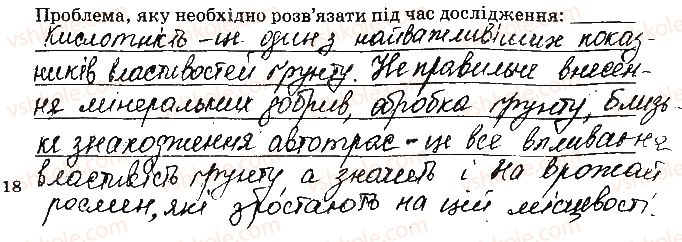 Проблема, яку необхідно розв'язати під час дослідження:
Кислотність – це один з найважливіших показ-
ників властивостей ґрунту. Неправильне внесен-
ня мінеральних добрив, обробка ґрунту, близь-
ке знаходження автотрас – це все впливає на
18 властивість ґрунту а значить і на врожай
рослин, які зростають на цій місцевості.